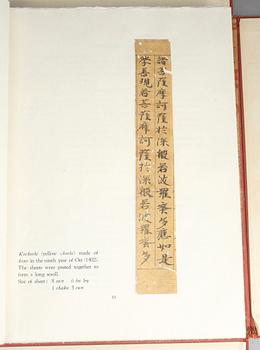 諸菩薩摩訶薩於深般若波羅蜜多應如是
學善現若菩薩摩訶薩於深般若波羅蜜多
(yellow choshi) made of
in the ninth year of Oei (1402).
The sheets were pasted together to
form a long scroll.
Size of sheet: 8 sun bu by
1 shaku sun